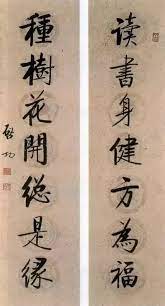 读書身健方為福
種樹花開總是緣
啟功